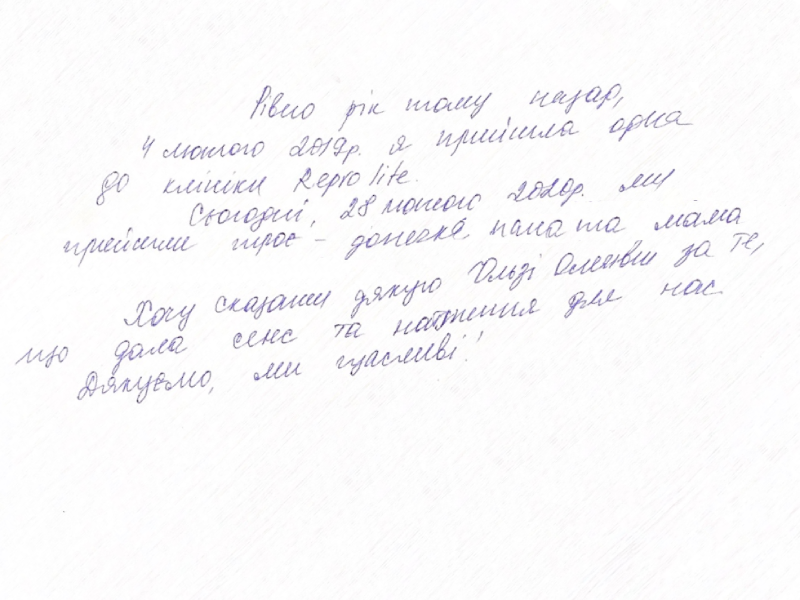 Рівно рік тому назад,
4 лютого 2019р. я прийшла одна
до клініки Repro lite.
Сьогодні, 28 лютого 2020р. ми
прийшли троє - донечка, папа та мама
Хочу сказати дякую Ользі за те,
що дала сенс та натхнення для нас.
Дякуємо, ми щасливі!